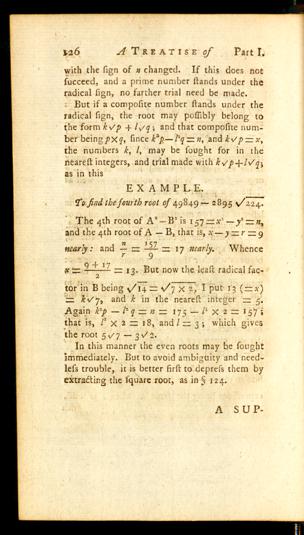 126 A TREATISE of Part I.
with the sign of n changed. If this does not
succeed, and a prime number stands under the
radical sign, no farther trial need be made.
But if a composite number stands under the
radical sign, the root may possibly belong to
the form k√p + l√q; and that composite num-
ber being p×q, since k²p−l²q=n, and k√p=x,
the numbers k, l, may be sought for in the
nearest integers, and trial made with k√p+l√q;
as in this
EXAMPLE.
To find the fourth root of 49849 − 2895 √224.
The 4th root of A² − B² is 157 = x² − y² = n,
and the 4th root of A − B, that is, x − y = r = 9
nearly: and n/r = 157/9 = 17 nearly. Whence
x = (9 + 17)/2 = 13. But now the least radical fac-
tor in B being √14 = √7 × 2, I put 13 (= x)
= k√7, and k in the nearest integer = 5.
Again k²p − l²q = n = 175 − l² × 2 = 157;
that is, l² × 2 = 18, and l = 3; which gives
the root 5√7 − 3√2.
In this manner the even roots may be sought
immediately. But to avoid ambiguity and need-
less trouble, it is better first to depress them by
extracting the square root, as in § 124.
A SUP-